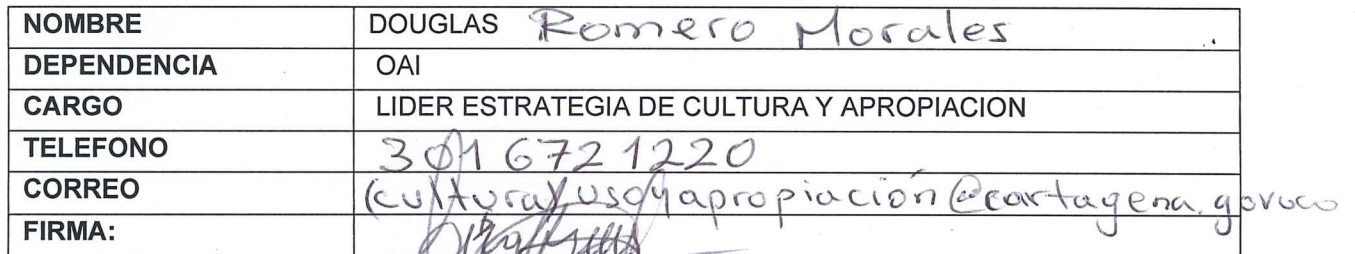 NOMBRE DOUGLAS Romero Morales
DEPENDENCIA OAI
CARGO LIDER ESTRATEGIA DE CULTURA Y APROPIACION
TELEFONO 301 6721220
CORREO (cultura) usoyapropiación@cartagena.gov.co
FIRMA: